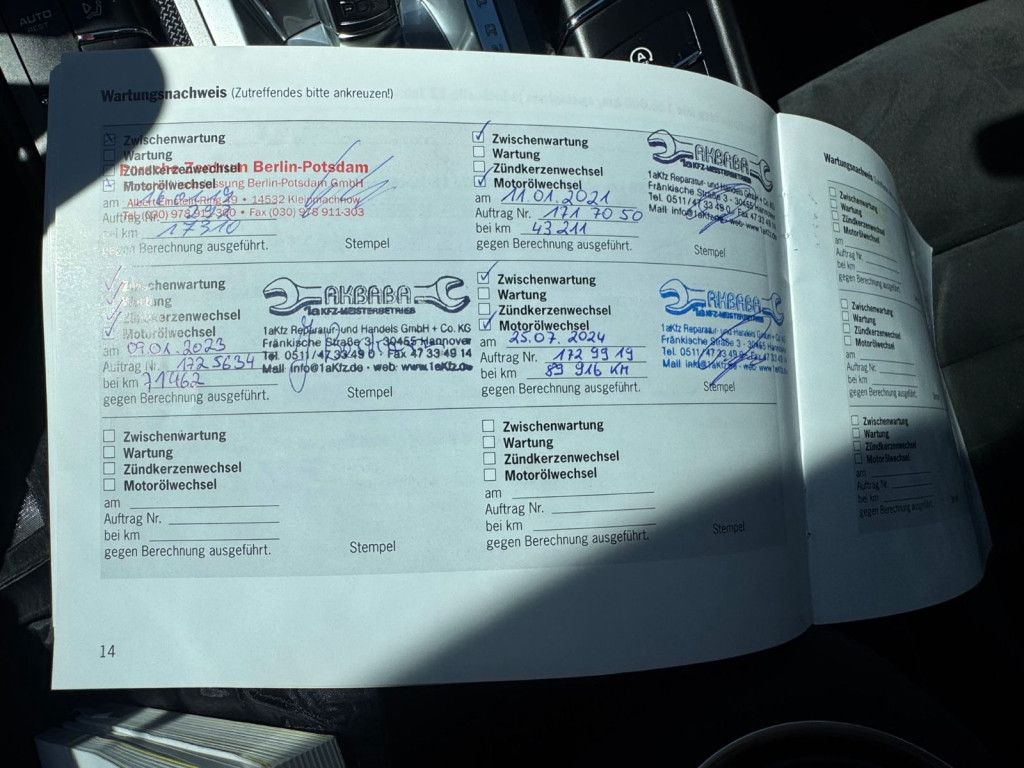 AUTO
Wartungsnachweis (Zutreffendes bitte ankreuzen!)
Zwischenwartung
Wartung
Zündkerzenwechsel
Motorölwechsel
Zentrum Berlin-Potsdam
Berlin-Potsdam GmbH
14532 Kleinmachnow
Fax (030) 978 911-303
am
bei km 17310
gegen Berechnung ausgeführt.
Stempel
Zwischenwartung
Wartung
Zündkerzenwechsel
Motorölwechsel
am 11.01.2021
Auftrag Nr. 171 70 50
bei km 43 211
gegen Berechnung ausgeführt.
AKBABA
1a KFZ-MEISTERBETRIEB
1aKfz Reparatur- und Handels GmbH
Fränkische Straße 3 - 30455
Tel. 0511/47 33 49 0
Mail: info@1aKfz.de - web: www.1aKfz
Stempel
Zwischenwartung
Wartung
Zündkerzenwechsel
Motorölwechsel
am 09.01.2023
Auftrag Nr. 172 5634
bei km 71462
gegen Berechnung ausgeführt.
AKBABA
1a KFZ-MEISTERBETRIEB
1aKfz Reparatur- und Handels GmbH + Co. KG
Fränkische Straße 3 - 30455 Hannover
Tel. 0511/47 33 49 0 Fax 47 33 49 14
Mail info@1aKfz.de - web: www.1aKfz.de
Stempel
Zwischenwartung
Wartung
Zündkerzenwechsel
Motorölwechsel
am 25.07.2024
Auftrag Nr. 172 99 19
bei km 89 916 KM
gegen Berechnung ausgeführt.
AKBABA
1a KFZ-MEISTERBETRIEB
1aKfz Reparatur- und Handels GmbH
Fränkische Straße 3 - 30455 Hannover
Tel. 0511/47 33 49 0 Fax 47 33 49 14
Mail info@1aKfz.de - web: www.1aKfz.de
Stempel
Zwischenwartung
Wartung
Zündkerzenwechsel
Motorölwechsel
am
Auftrag Nr.
bei km
gegen Berechnung ausgeführt.
Stempel
Zwischenwartung
Wartung
Zündkerzenwechsel
Motorölwechsel
am
Auftrag Nr.
bei km
gegen Berechnung ausgeführt.
Stempel
14
Wartungsnachweis
Zwischenwartung
Wartung
Zündkerzenwechsel
Motorölwechsel
am
Auftrag Nr.
bei km
gegen Berechnung ausgeführt.
Zwischenwartung
Wartung
Zündkerzenwechsel
Motorölwechsel
am
Auftrag Nr.
bei km
gegen Berechnung ausgeführt.
Zwischenwartung
Wartung
Zündkerzenwechsel
Motorölwechsel
am
Auftrag Nr.
bei km
gegen Berechnung ausgeführt.